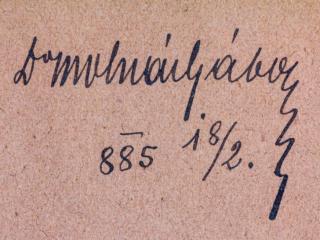 Dr Molnár Gábor
885 18/2.